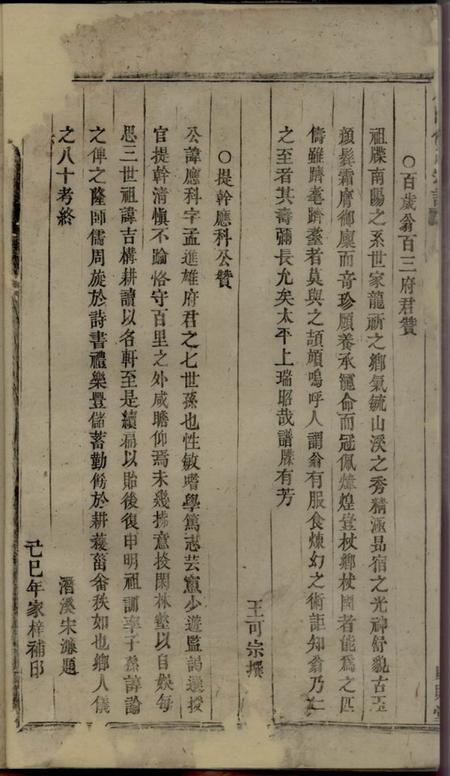 ○百歲翁百三府君贊
祖牒南陽之系世家龍斾之鄉氣毓山溪之秀精涵昴宿之光神舒貌古玉
顏鬆霜膺鄉稟而奇珍頤養承寵命而冠佩煒煌豈杖鄉杖國者能為之匹
儔雖躋耄躋耋者莫與之頡頏嗚呼人謂翁有服食煉幻之術詎知翁乃仁
之至者其壽彌長允矣太平上瑞昭哉譜牒有芳
王可宗撰
○提幹應科公贊
公諱應科字孟進雄府君之七世孫也性敏嗜學篤志芸窻少遊監謁選授
官提幹淸愼不踰恪守百里之外咸瞻仰焉未幾拂意投閑林壑以自娛每
思三世祖諱吉構耕讀以名軒至是續扁以貽後復申明祖訓率子孫講論
之俾之隆師儒周旋於詩書禮樂豐儲蓄勤脩於耕穫菑畬秩如也鄉人儀
之八十考終
潛溪宋濂題
己巳年家梓補印